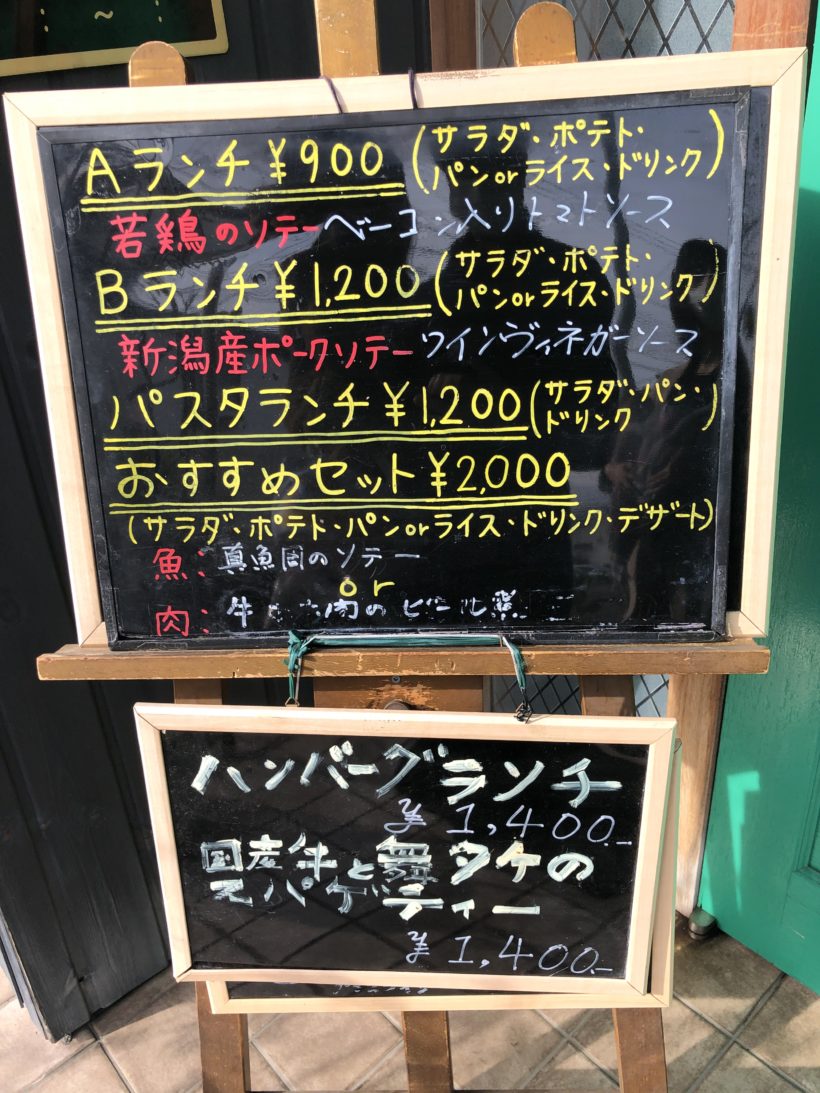 Aランチ ¥900 (サラダ・ポテト・
パンorライス・ドリンク)
若鶏のソテーベーコン入りトマトソース
Bランチ ¥1,200 (サラダ・ポテト・
パンorライス・ドリンク)
新潟産ポークソテーワインヴィネガーソース
パスタランチ ¥1,200 (サラダ・パン・
ドリンク)
おすすめセット ¥2,000
(サラダ・ポテト・パンorライス・ドリンク・デザート)
魚: 真魚国のソテー
or
肉: 牛 肉のビール
ハンバーグランチ
¥1,400.-
国産牛と舞タケの
スパゲティー
¥1,400.-